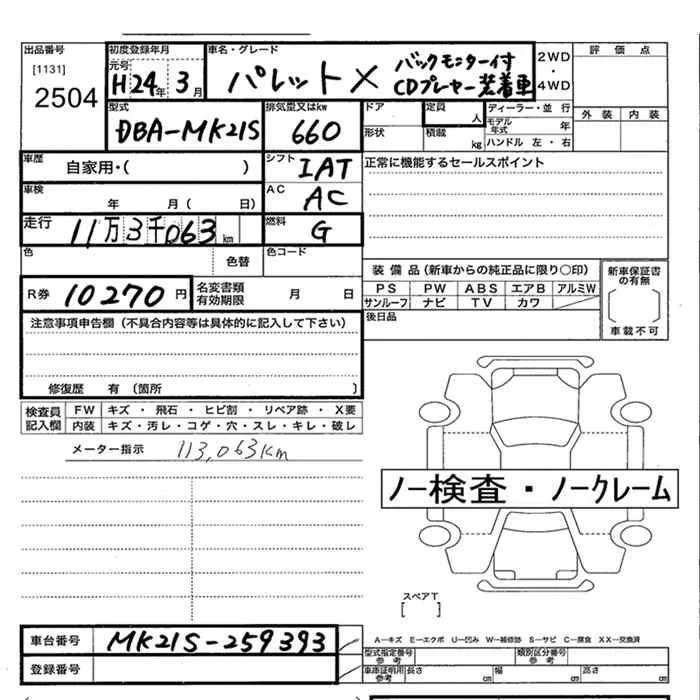 出品番号 [1131] 2504
初度登録年月 元号 H24年 3月
車名・グレード パレット X バックモニター付 CDプレヤー装着車
2WD・4WD
評価点
外装 内装
型式 DBA-MK21S
排気型又はkw 660
ドア 形状
定員 人
積載 kg
ディーラー・並行
モデル年式 年
ハンドル 左・右
車歴 自家用・( )
シフト IAT
正常に機能するセールスポイント
車検 年 月( 日)
AC AC
走行 11万3千063km
燃料 G
色 色替 色コード
装備品(新車からの純正品に限り○印)
PS PW ABS エアB アルミW
サンルーフ ナビ TV カワ
新車保証書の有無
車載不可
後日品
R券 10270円
名変書類有効期限 月 日
注意事項申告欄(不具合内容等は具体的に記入して下さい)
修復歴 有(箇所 )
検査員記入欄
FW キズ・飛石・ヒビ割・リペア跡・X要
内装 キズ・汚レ・コゲ・穴・スレ・キレ・破レ
メーター指示 113,063km
ノー検査・ノークレーム
スペアT
[ ]
車台番号 MK21S-259393
登録番号
A-キズ E-エクボ U-凹み W-補修跡 S-サビ C-腐食 XX-交換済
型式指定番号 参考
類別区分番号 参考
車庫証明用 参考 長さ cm 幅 cm 高さ cm